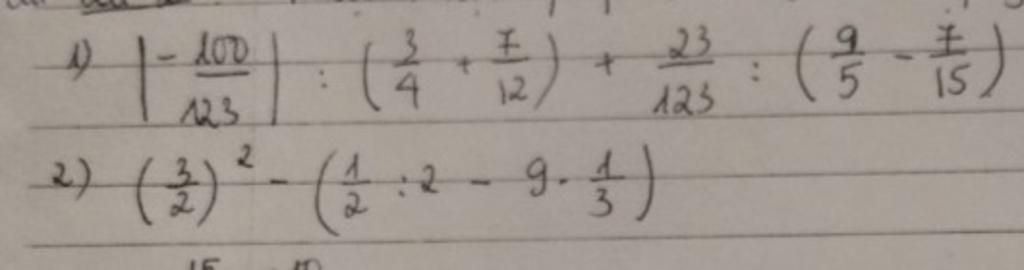 1) |-100/123| : (3/4 + 7/12) + 23/123 : (9/5 - 7/15)
2) (3/2)² - (1/2 : 2 - 9 · 1/3)